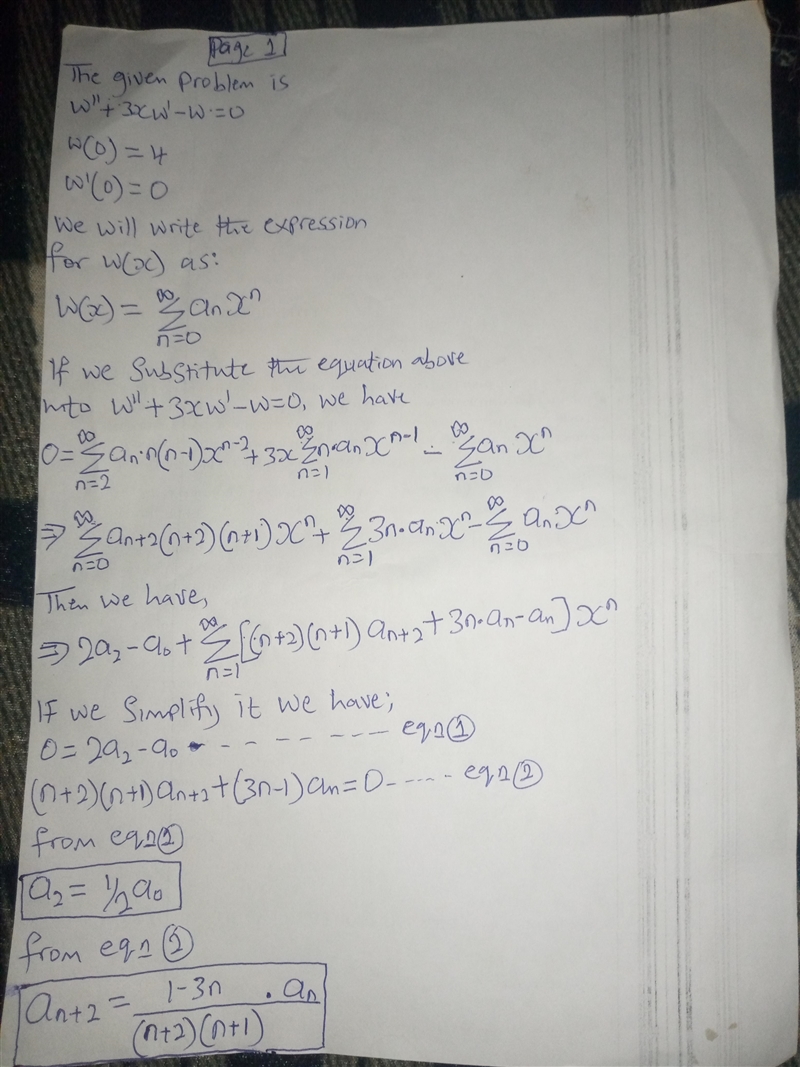 Page 1
The given problem is
w'' + 3xw' - w = 0
w(0) = 4
w'(0) = 0
We will write the expression
for w(x) as:
w(x) = ∞ Σ n=0 aₙxⁿ
If we substitute the equation above
into w'' + 3xw' - w = 0, we have
0 = ∞ Σ n=2 aₙ·n(n-1)xⁿ⁻² + 3x ∞ Σ n=1 n·aₙxⁿ⁻¹ - ∞ Σ n=0 aₙxⁿ
⇒ ∞ Σ n=0 aₙ₊₂(n+2)(n+1)xⁿ + ∞ Σ n=1 3n·aₙxⁿ - ∞ Σ n=0 aₙxⁿ
Then we have,
⇒ 2a₂ - a₀ + ∞ Σ n=1 [(n+2)(n+1)aₙ₊₂ + 3n·aₙ - aₙ]xⁿ
If we simplify it we have;
0 = 2a₂ - a₀ - - - - - - - - - eqn ①
(n+2)(n+1)aₙ₊₂ + (3n-1)aₙ = 0 - - - - - eqn ②
a₂ = 1/2 a₀
aₙ₊₂ = 1-3n / (n+2)(n+1) · aₙ